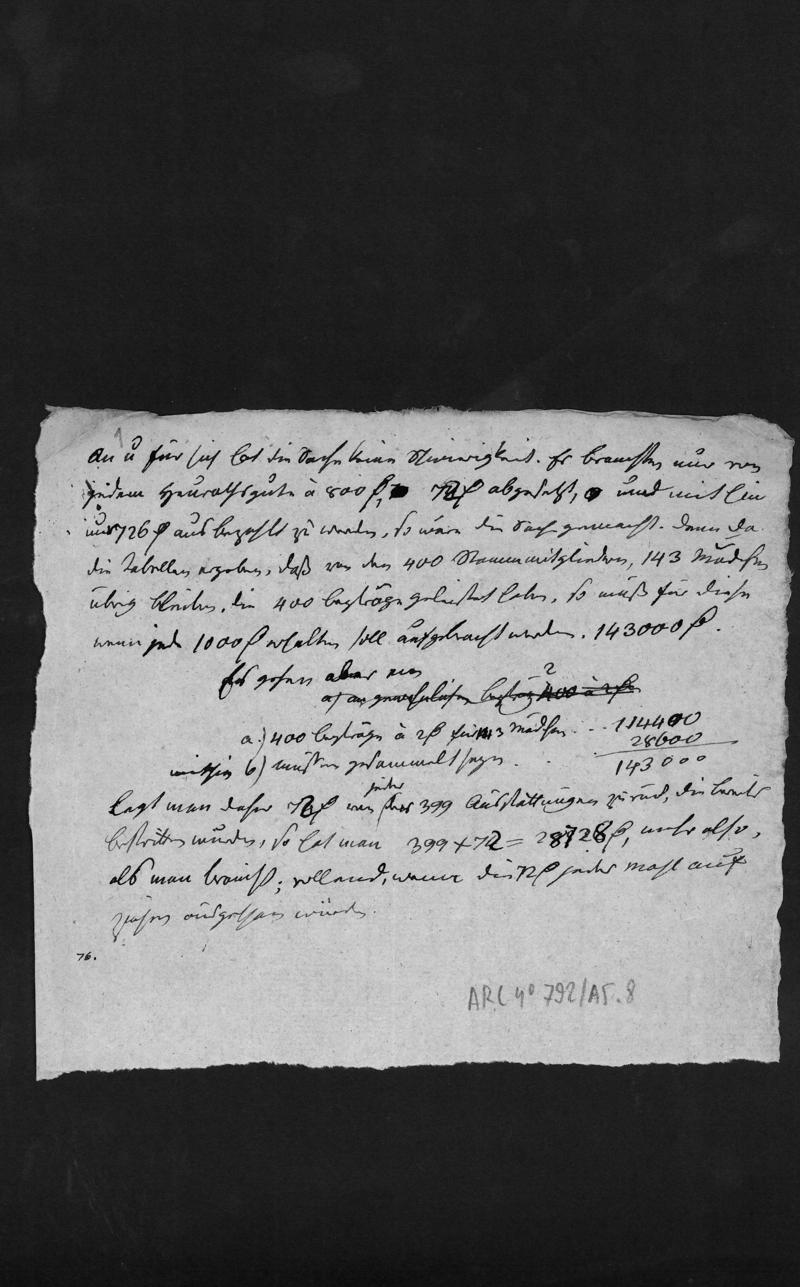 1
An u für sich hat die Sache keine Schwierigkeit. Es brauchten nur von
jedem Heurathsgute à 800 f, 72 f abgesetzt, und mit hin
nur 728 f ausbezahlt zu werden, so wäre die Sach gemacht. Denn da
die Tabellen ergeben, daß von den 400 Stammmitgliedern, 143 Mädchen
übrig bleiben, die 400 beyträge geleistet haben, so muß für diese
wenn jede 1000 f erhalten soll aufgebracht werden. 143000 f.
Es gehen aber ein
a) an gewöhnlichen beyträg 400 à 2 f
2
a.) 400 beyträge à 2 f für 143 Mädchen . . . 114400
28600
mithin b) müssen gesammelt seyn . . 143000
jeder
Legt man daher 72 f von 399 Ausstattungen zurück, die bereits
bestritten wurden, so hat man 399 + 72 = 28728 f, mehr also,
als man braucht; vollend, wenn die 72 f jedes Mahl auf
Zinsen ausgethan würden.
76.
ARC 4° 792/A5.8